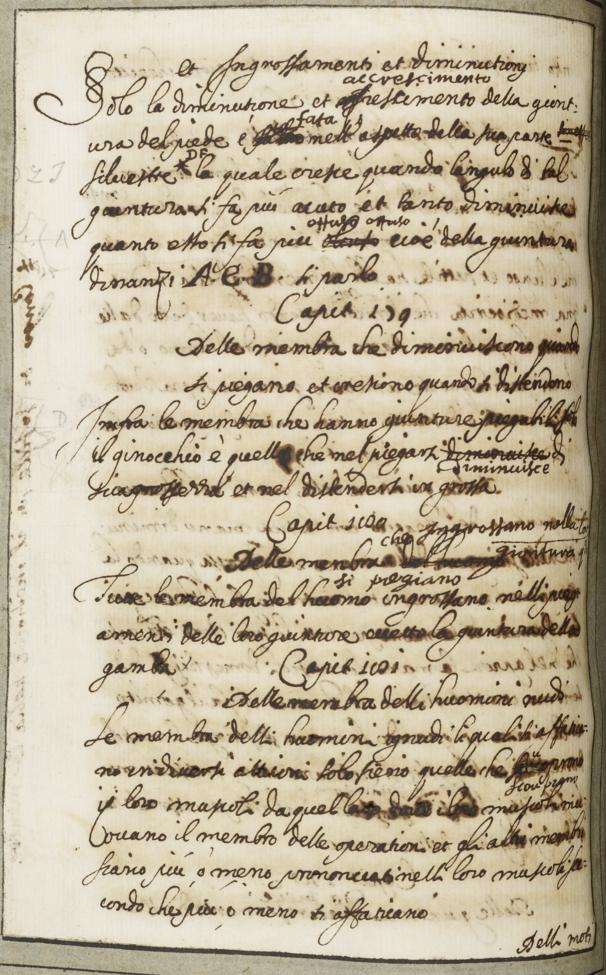 et Ingrossamenti et diminutioni
accrescimento
Solo la diminutione et della giont:
fata
ura del piede é nell aspetto della sua parte
silvestre DE la quale cresce quando langulo di tal
giuntura si fa piú acuto et tanto diminuisce
ottuso ottuso
quanto esso si fa piu cioé della giuntura
dinanzi A C B si parla
Capit 199
Delle membra che diminuiscono quando
si piegano et cresiono quando si distendono
Infra le membra che hanno giunture piegabili solo
il ginocchio è quello che nel piegarsi diminuisce di
diminuisce
sua grossezza et nel distendersi in grossa
Capit
che Ingrossano nella
Delle membra giuntura
si piegiano
Tutte le membra del huomo ingrossano nelli pieg
amenti delle loro giunture eccetto la giuntura della
gamba Capit
Delle membra delli huomini nudi
Le membra delli huomini ignudi li quali si affatica:
no in diversi attioni solo sieno quelle che
scouprono
i loro muscoli da quel lato i loro muscoli
ouano il membro delle operationi et gli altri membri
siano piú ò meno prononciati nelli loro muscoli se:
condo che piú ò meno si affaticano
Delli moti